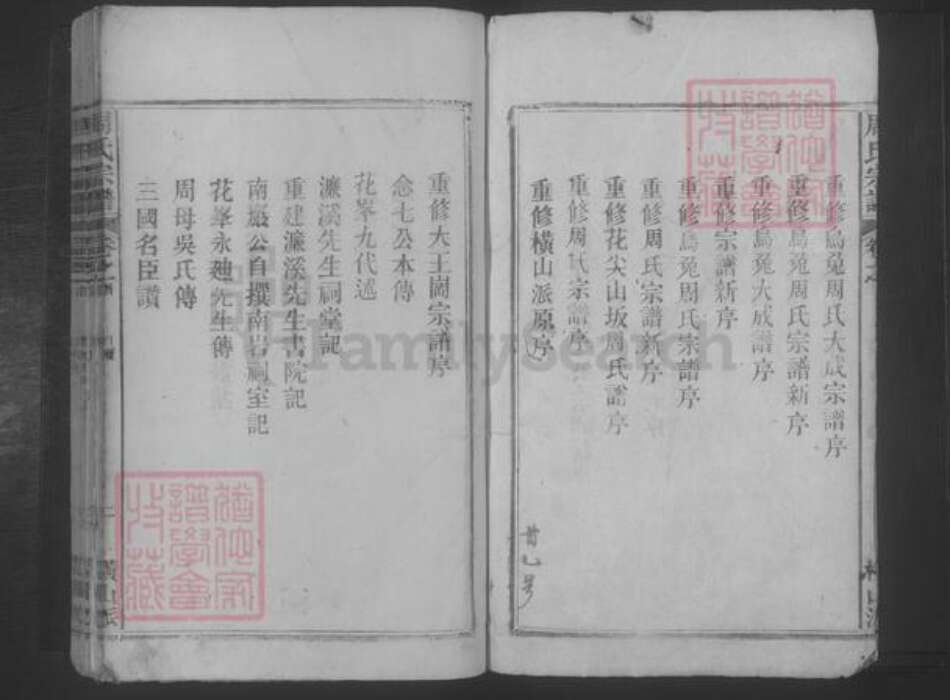 重修鳥兎周氏大成宗譜序
重修鳥兎周氏宗譜新序
重修鳥兎大成譜序
重修宗譜新序
重修鳥兎周氏宗譜序
重修周氏宗譜新序
重修花尖山坂周氏譜序
重修周氏宗譜序
重修橫山派原序
重修大王閎宗譜序
念七公本傳
花峯九代述
濂溪先生祠堂記
重建濂溪先生書院記
南巖公自撰南岩祠室記
花峯永廸先生傳
周母吳氏傳
三國名臣讚
周氏宗譜
橫山派
FamilySearch